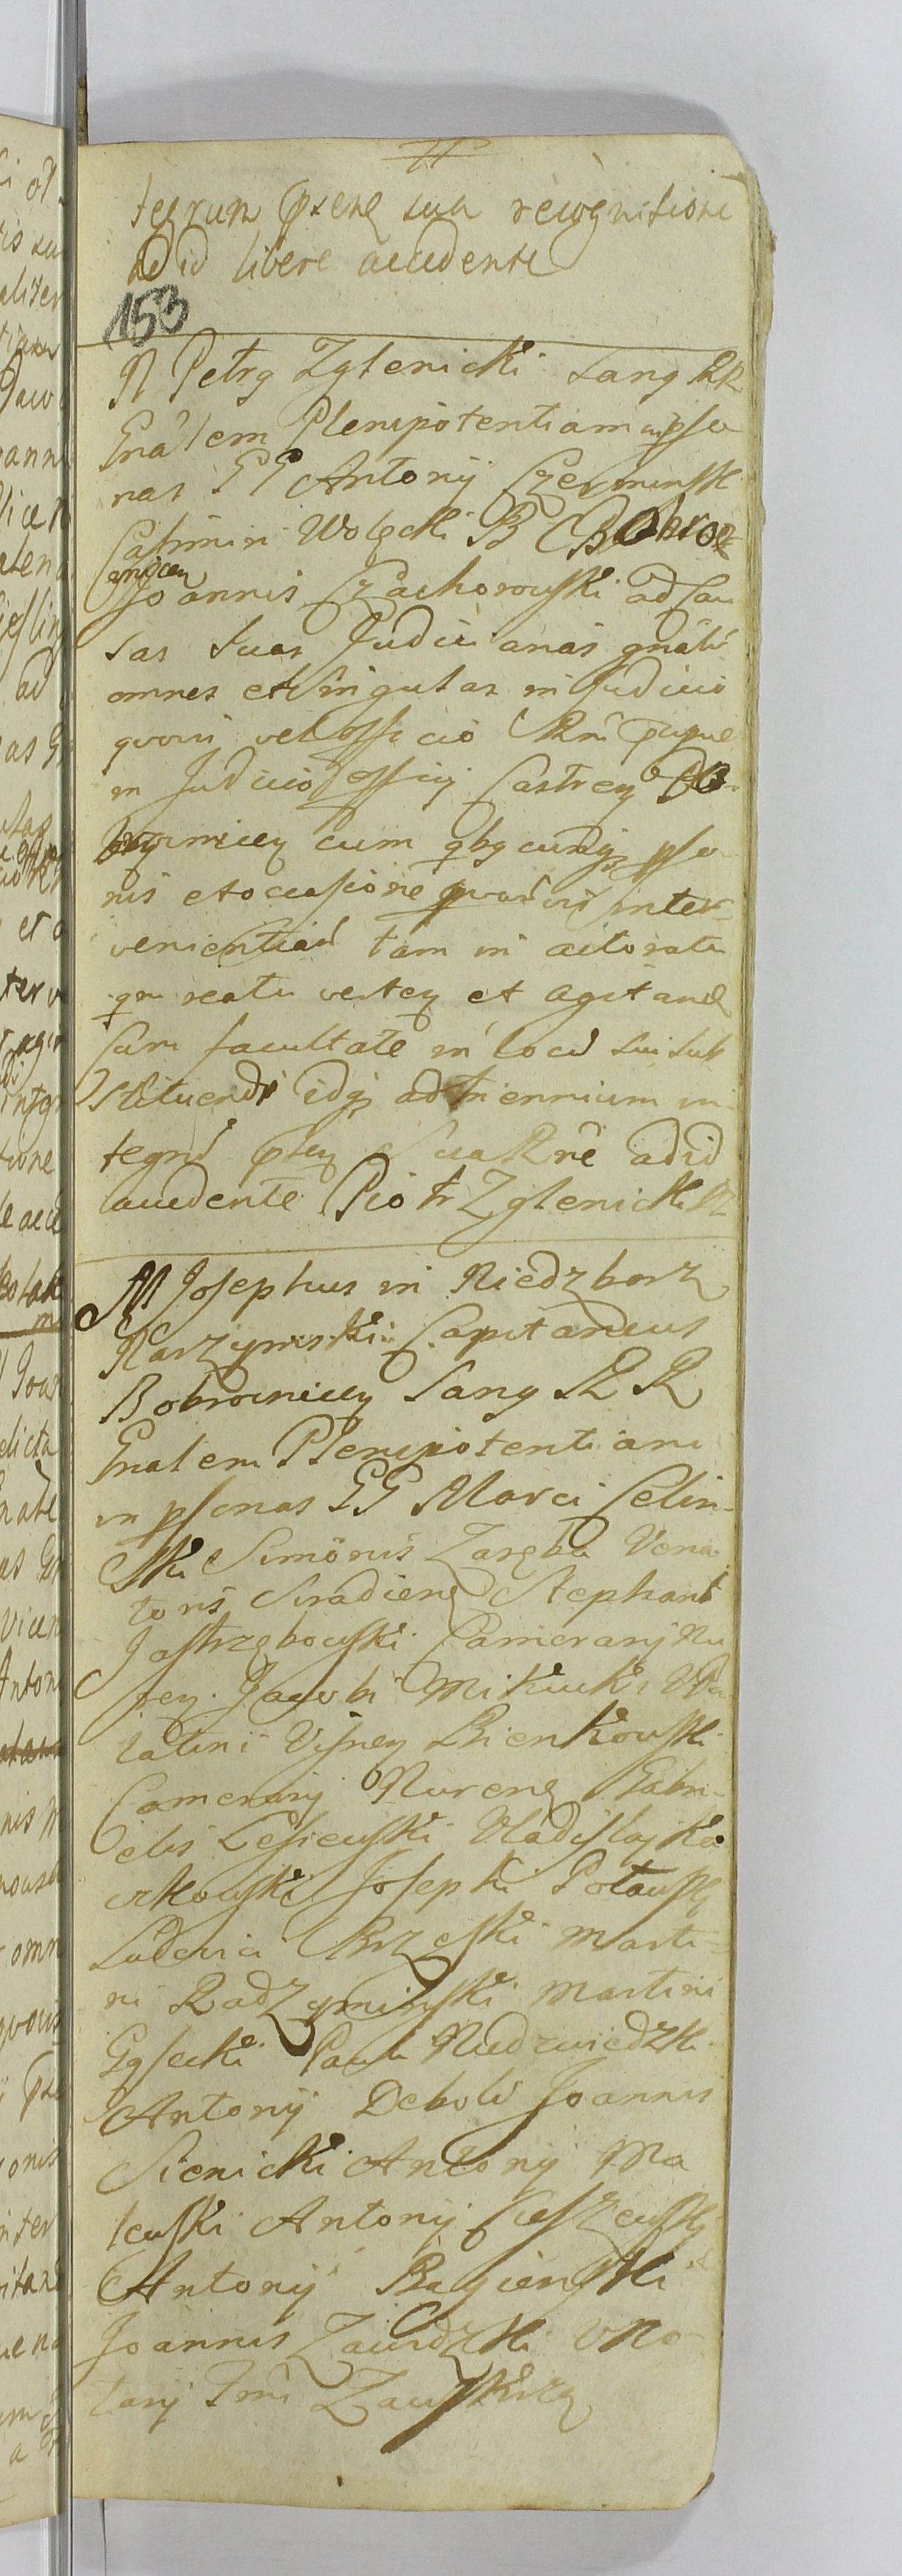 tegrum pxenę sua recognitione
ad id libere accedente
153
N Petrg Zglenicki Sang RR
Gnalem Plenipotentiam in pso
nas GG Antonij Czerminsk
Casimiri Wolęcki B Bobrow
anicen
Joannis Czachorowski ad Cau
sas Suas Judiciarias gnalr
omnes et Singulas in Judicio
qvovis vel officio Rni
in Judicio officij Castreń Bo
browniceń cum qbgcunqz pso
nis et occasione qvarvis inter
venientiarũ tam in actoratu
qm reatu verteń et agitand
Cum facultate in locũ sui sub
stituendi idqz ad triennium in
tegrũ Sua Rnē ad id
accedente Piotr Zglenicki
M Josephus in Niedzborz
Narzymski Capitaneus
Bobrowniceń Sang R R
Gnalem Plenipotentiam
in psonas GG Marci Celin
ski Simonis Zaręba Vena
toris Siradienę Stephani
Jastrzębowski Camerarij Nu
reń Jacobi Mikucki
Bienkowski
Camerarij Nurenę Gabri
elis Lesiewski Vladislaj Ka
Josephi Potawski
Ludovici Brzeski Marti
ni Radzyminski Martini
Gąsecki Pauli Niedzwiedzki
Antonij Deboli Joannis
Sienicki Antonij Ma
lewski Antonij Cieszewski
Antonij Bagienski
Joannis Zawidzki VNo
tarij Trrũ Zawskrzę